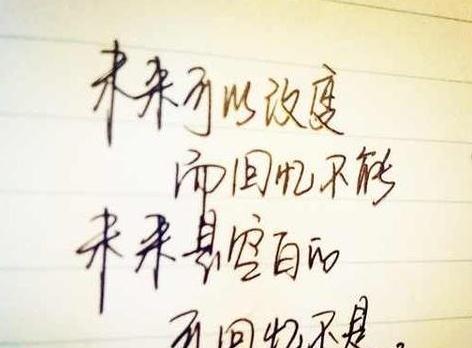 未来可以改变
而回忆不能
未来是空白的
可回忆不是。